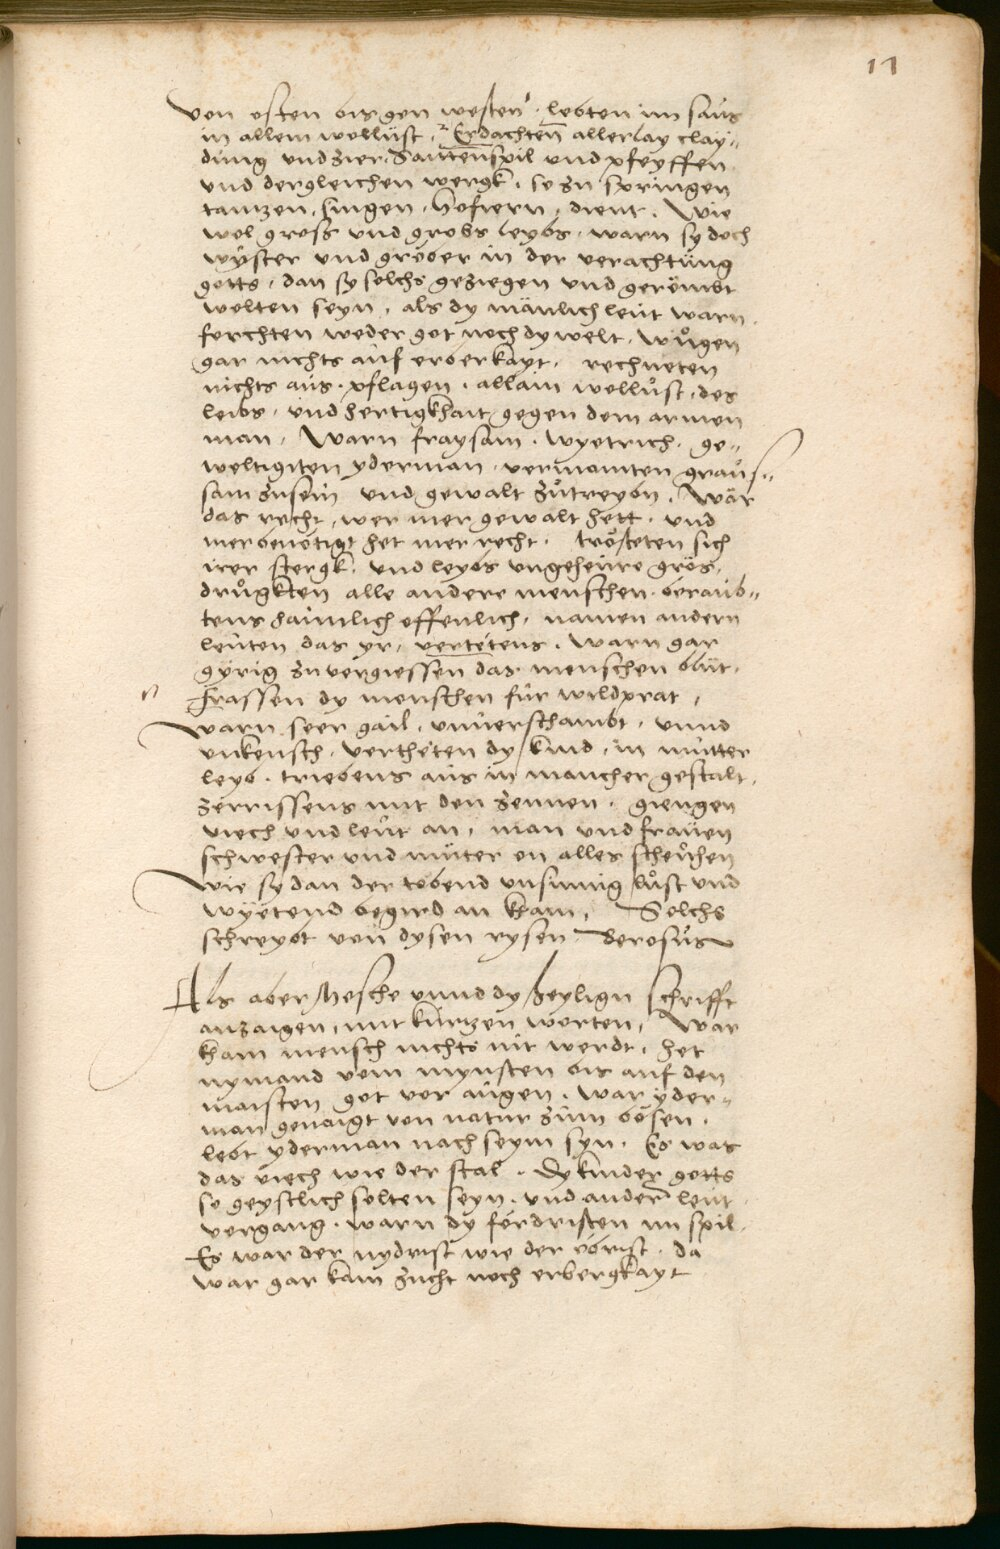 11
von osten bis gen westen · lebten im saüs
in allem wollüst · Erdachten allerlay clay=
düng vnd zier · Saittenspil vnd pfeyffen
vnd dergleichen wergk · so zu springen
tantzen · singen · hofiern · dient · Wie
wol gross vnd grobs leybs · warn sy doch
wÿster vnd gröber in der verachtüng
gotts · dan sy solchs geziegen vnd gerömbt
wolten seyn · als dy mänlich leüt warn
forchten weder got noch dy welt · wůgen
gar nichts aüf erberkayt · rechneten
nichts aüs · pflagen · allain wollůst · des
leibs · vnd hertigkhait gegen dem armen
man · Warn fraysam · wyetrich · ge=
weltigiten yderman · vermainten graůs=
sam zusein vnd gewalt zůtreyben · Wär
das recht · wer mer gewalt hett · vnd
mer benötigt het mer recht · trösteten sich
irer stergk · vnd leybs vngeheüre grös ·
drůgkten alle andere menschen · beraüb=
tens haimlich offenlich · namen andern
leüten das yr · vertötens · Warn gar
gÿrig zu vergiessen das menschen blüt ·
Frassen dy menschen für wildprat ·
Warn seer gail · vnuerschambt · vnnd
vnkeusch · verthëten dy kind · in mutter
leyb · triebens aüs in mancher gestalt ·
zerrissens mit den zennen · giengen
viech vnd leüt an · man vnd fraüen
schwester vnd müter on alles scheüchen
Wie sy dan der tobend vnsinnig lůst vnd
wÿetend begird an kham · Solchs
schreybt von dysen rysen Berosüs
Als aber Mosche vnnd dy heylign schrifft
anzaigen · mit kürtzen worten · War
kham mensch nichts nit werdt · het
nymand vom mynsten bis aüf den
maisten got vor aügen · war yder=
man genaigt von natur züm bösen ·
lebt yderman nach seym syn · Es was
das viech wie der stal · Dy kinder gotts
so geystlich solten seyn · vnd ander leüt
vorgang · warn dy fördristen im spil ·
Es war der nydrist wie der öbrist · da
war gar kain zücht noch erbergkayt